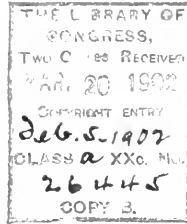 THE LIBRARY OF
CONGRESS,
TWO COPIES RECEIVED
MAR. 20 1902
COPYRIGHT ENTRY
Feb. 5. 1902
CLASS a XXc. No.
26445
COPY B.